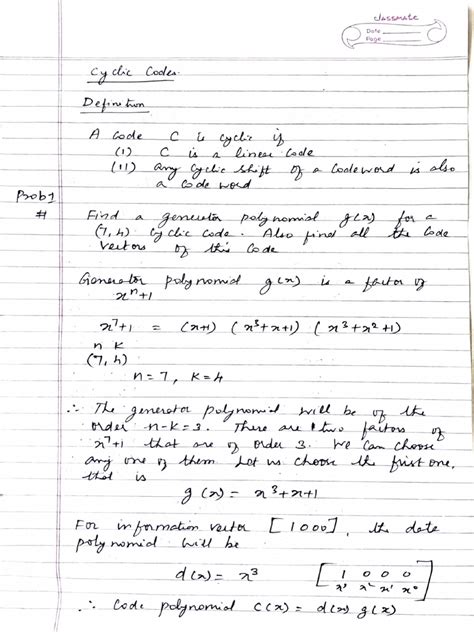 classmate
Date
Page
Cyclic Codes.
Definition
A code C is cyclic if
(i) C is a linear code
(ii) any cyclic shift of a codeword is also
a code word
Prob 1
# Find a generator polynomial g(x) for a
(7,4) cyclic code. Also find all the code
vectors of this code
Generator polynomial g(x) is a factor of
xⁿ+1
x⁷+1 = (x+1) (x³+x+1) (x³+x²+1)
n k
(7,4)
n=7, k=4
∴ The generator polynomial will be of the
order n-k=3. There are two factors of
x⁷+1 that are of order 3. We can choose
any one of them Let us choose the first one,
that is
g(x) = x³+x+1
For information vector [1000], the data
polynomial will be
d(x) = x³ [1 0 0 0]
x³ x² x¹ x⁰
∴ Code polynomial C(x) = d(x) g(x)